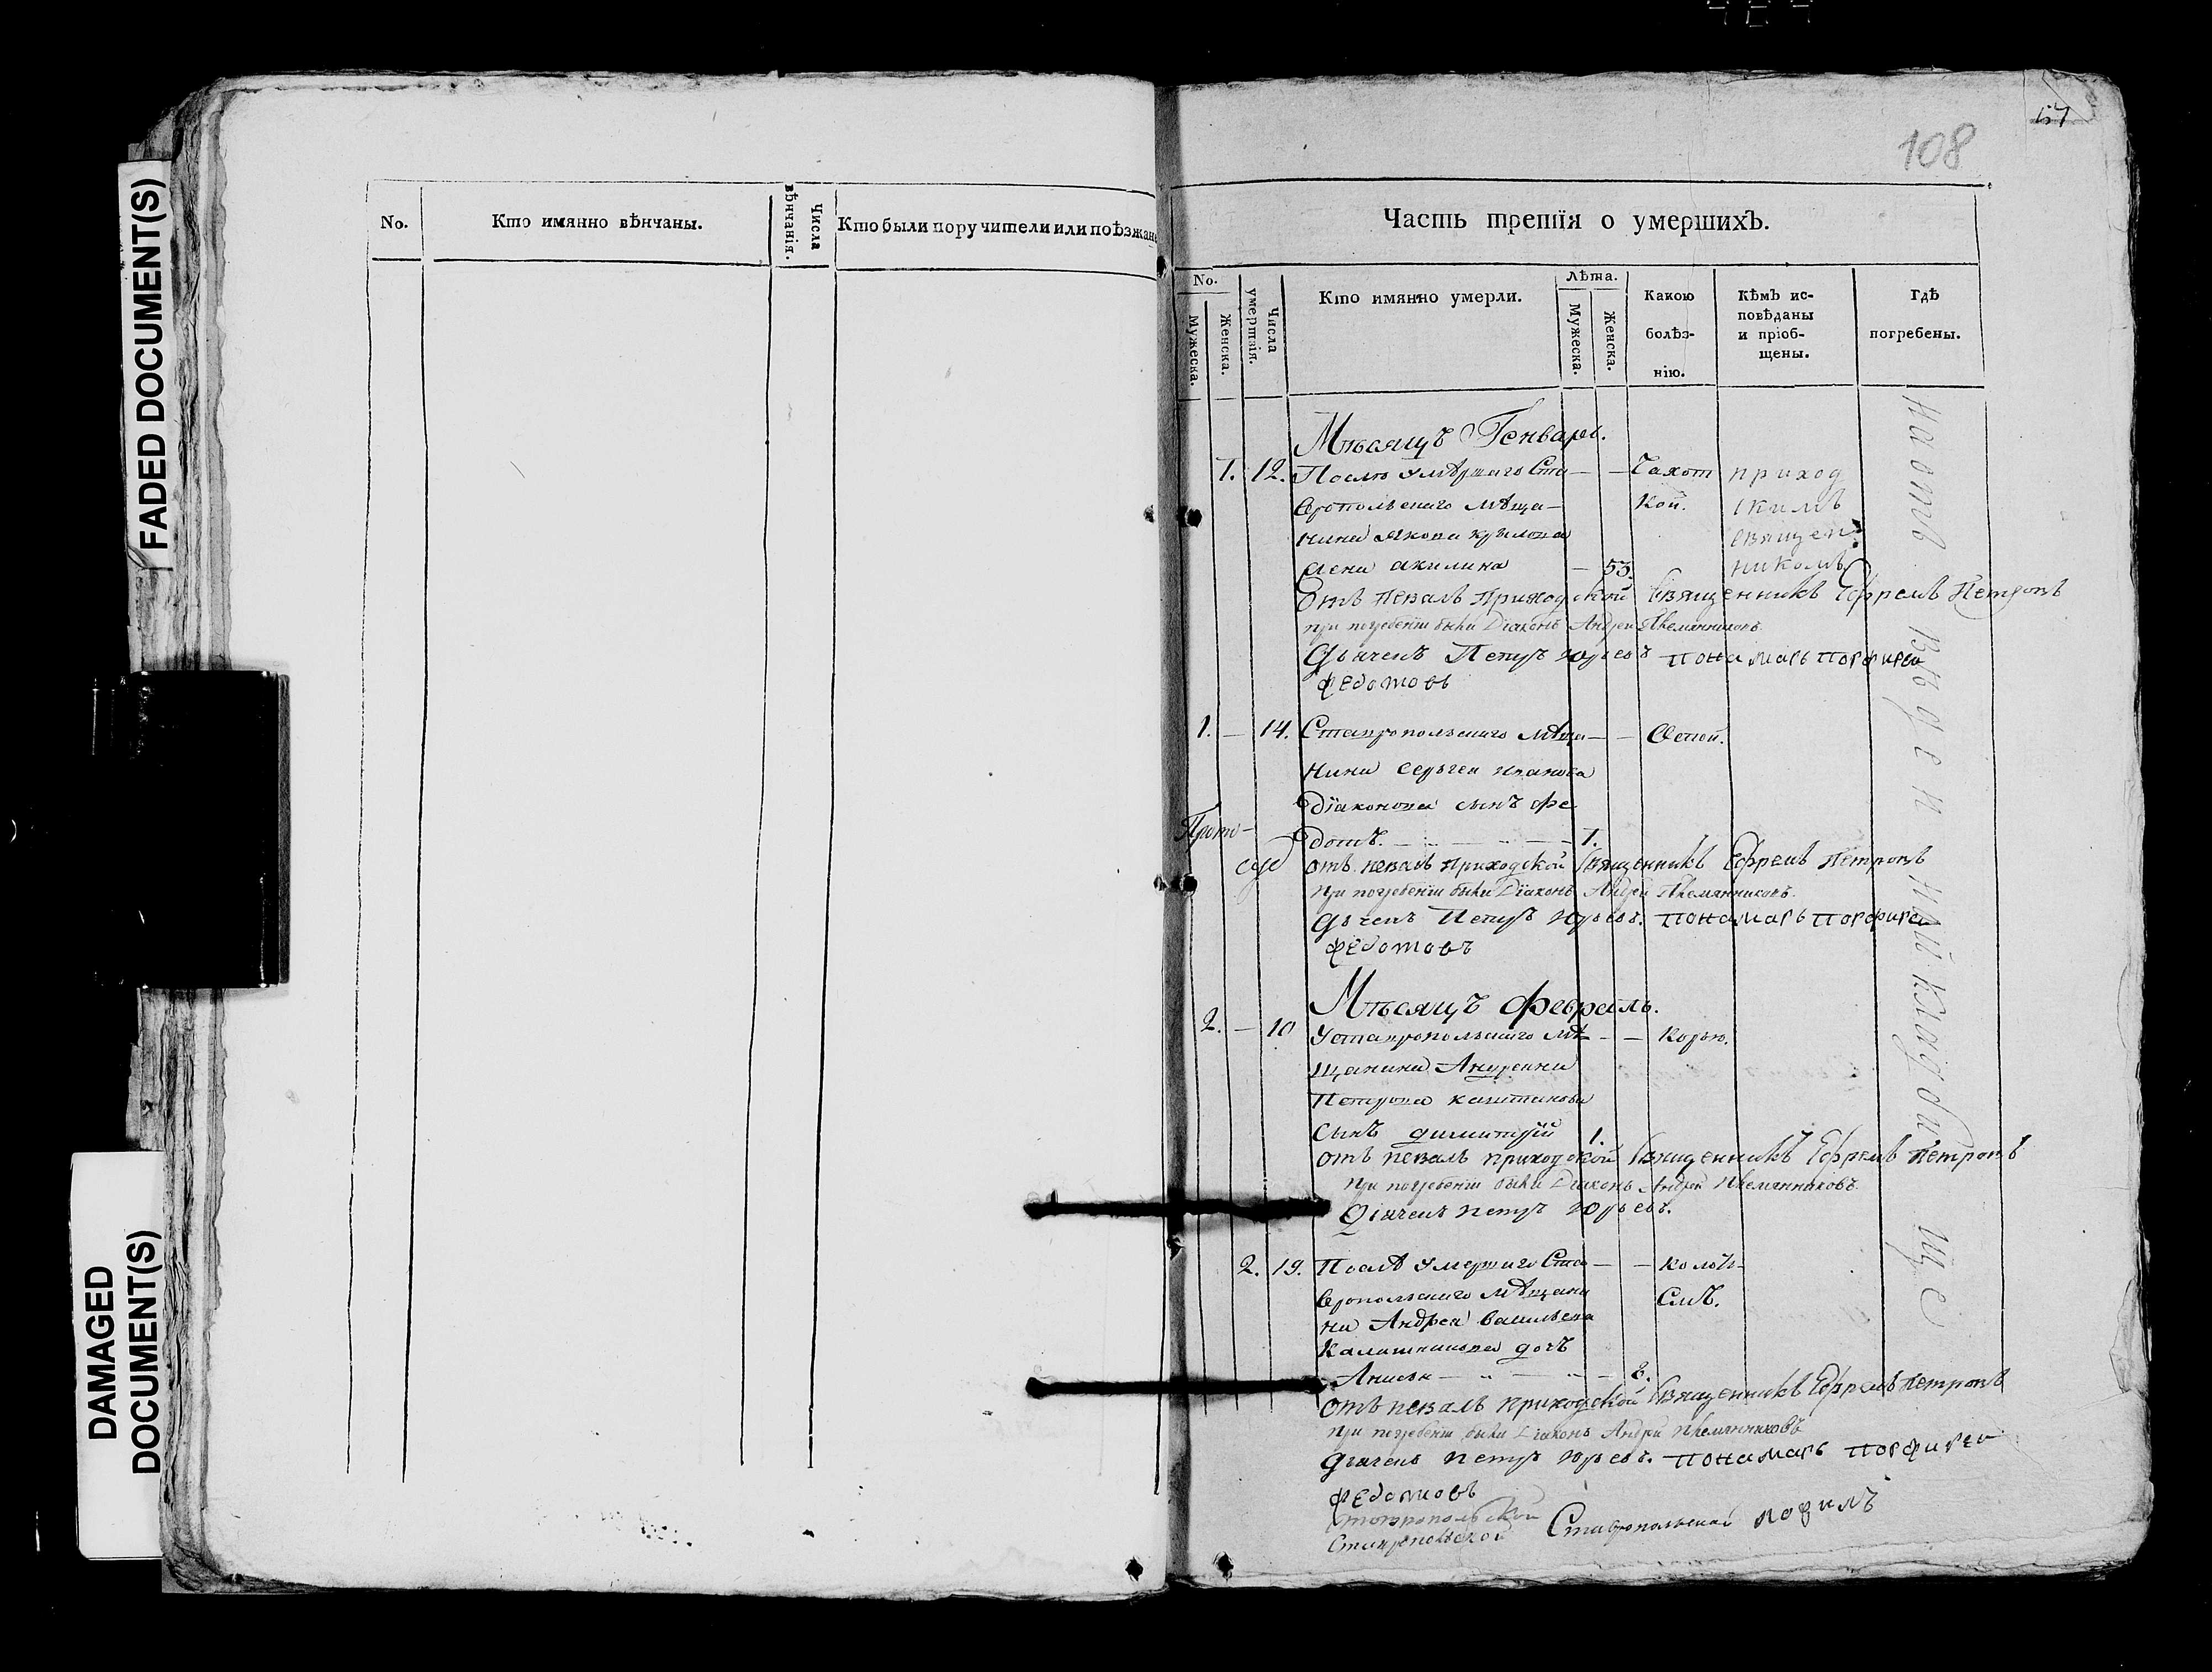 FADED DOCUMENT(S)
DAMAGED
DOCUMENT(S)
No.
Кто имянно вѣнчаны.
Числа
вѣнчанія.
Кто были поручители или поѣзжан
108
Часть третія о умершихъ.
No.
Мужеска.
Женска.
Числа
умертвія.
Кто имянно умерли.
Лѣта.
Мужеска.
Женска.
Какою
болѣз-
нію.
Кѣмъ ис-
повѣданы
и пріоб-
щены.
Гдѣ
погребены.
Мѣсяцъ Генварь.
1. 12. Послѣ умѣршаго Ста — — Чахот приход
вропольскаго мѣща- кой. скимъ
нина Якова Крылова священ
жена акилина — 53. никомъ
отъ певалъ Приходской Священникъ Ефремъ Петровъ
при погребеніи были Діаконъ Андрей Племянниковъ
Дьячекъ Петръ Юрьевъ понамарь порфирей
федотовъ
1. — 14. Ставропольскаго мѣща — — Оспой.
нина Сергея иванова
Діаконова сынъ фе
дотъ. — 1.
отъ певалъ приходской Священникъ Ефремъ Петровъ
при погребеніи были Діаконъ Андрей Племянниковъ
Дьячекъ Петръ Юрьевъ. понамарь порфирей
федотовъ
Мѣсяцъ февраль.
2. — 10 Уставропольскаго мѣ — — Корью.
щанина Андреяна
Петрова
сынъ димитрій 1.
отъ певалъ приходской Священникъ Ефремъ Петровъ
при погребеніи были Діаконъ Андрей Племянниковъ
Діячекъ Петръ Юрьевъ.
2. 19. Послѣ умершаго Ста — — колоть-
вропольскаго мѣщани смъ.
на Андрея васильева
Калашникова дочь
Анисья — 8.
отъ певалъ приходской Священникъ Ефремъ Петровъ
при погребеніи были Діаконъ Андрей Племянниковъ
Дьячекъ Петръ Юрьевъ. понамарь порфирей
федотовъ
Ставропольской
На отъ вѣденной кладбище